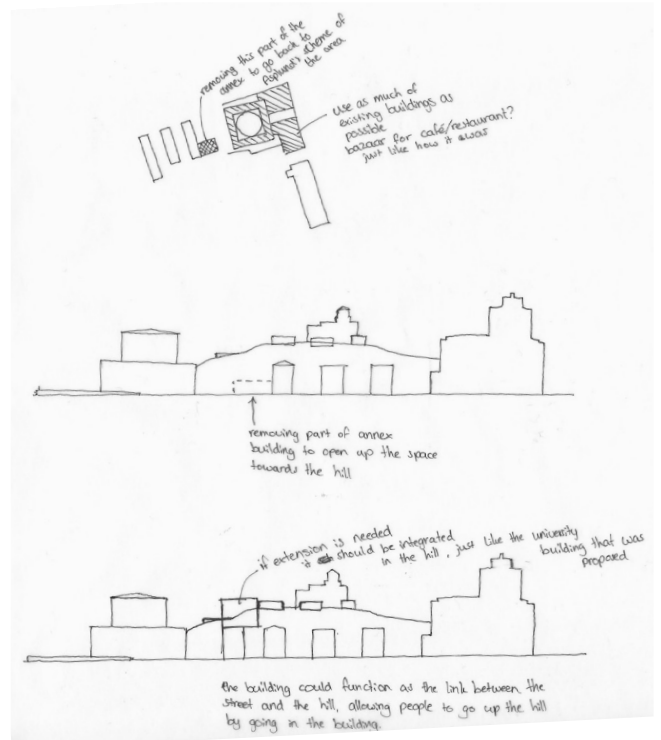 removing this part of the
annex to go back to
Asplund's scheme of
the area
use as much of
existing buildings as
possible
bazaar for café/restaurant?
just like how it was
removing part of annex
building to open up the space
towards the hill
if extension is needed
it should be integrated
in the hill, just like the university
building that was
proposed
the building could function as the link between the
street and the hill, allowing people to go up the hill
by going in the building.